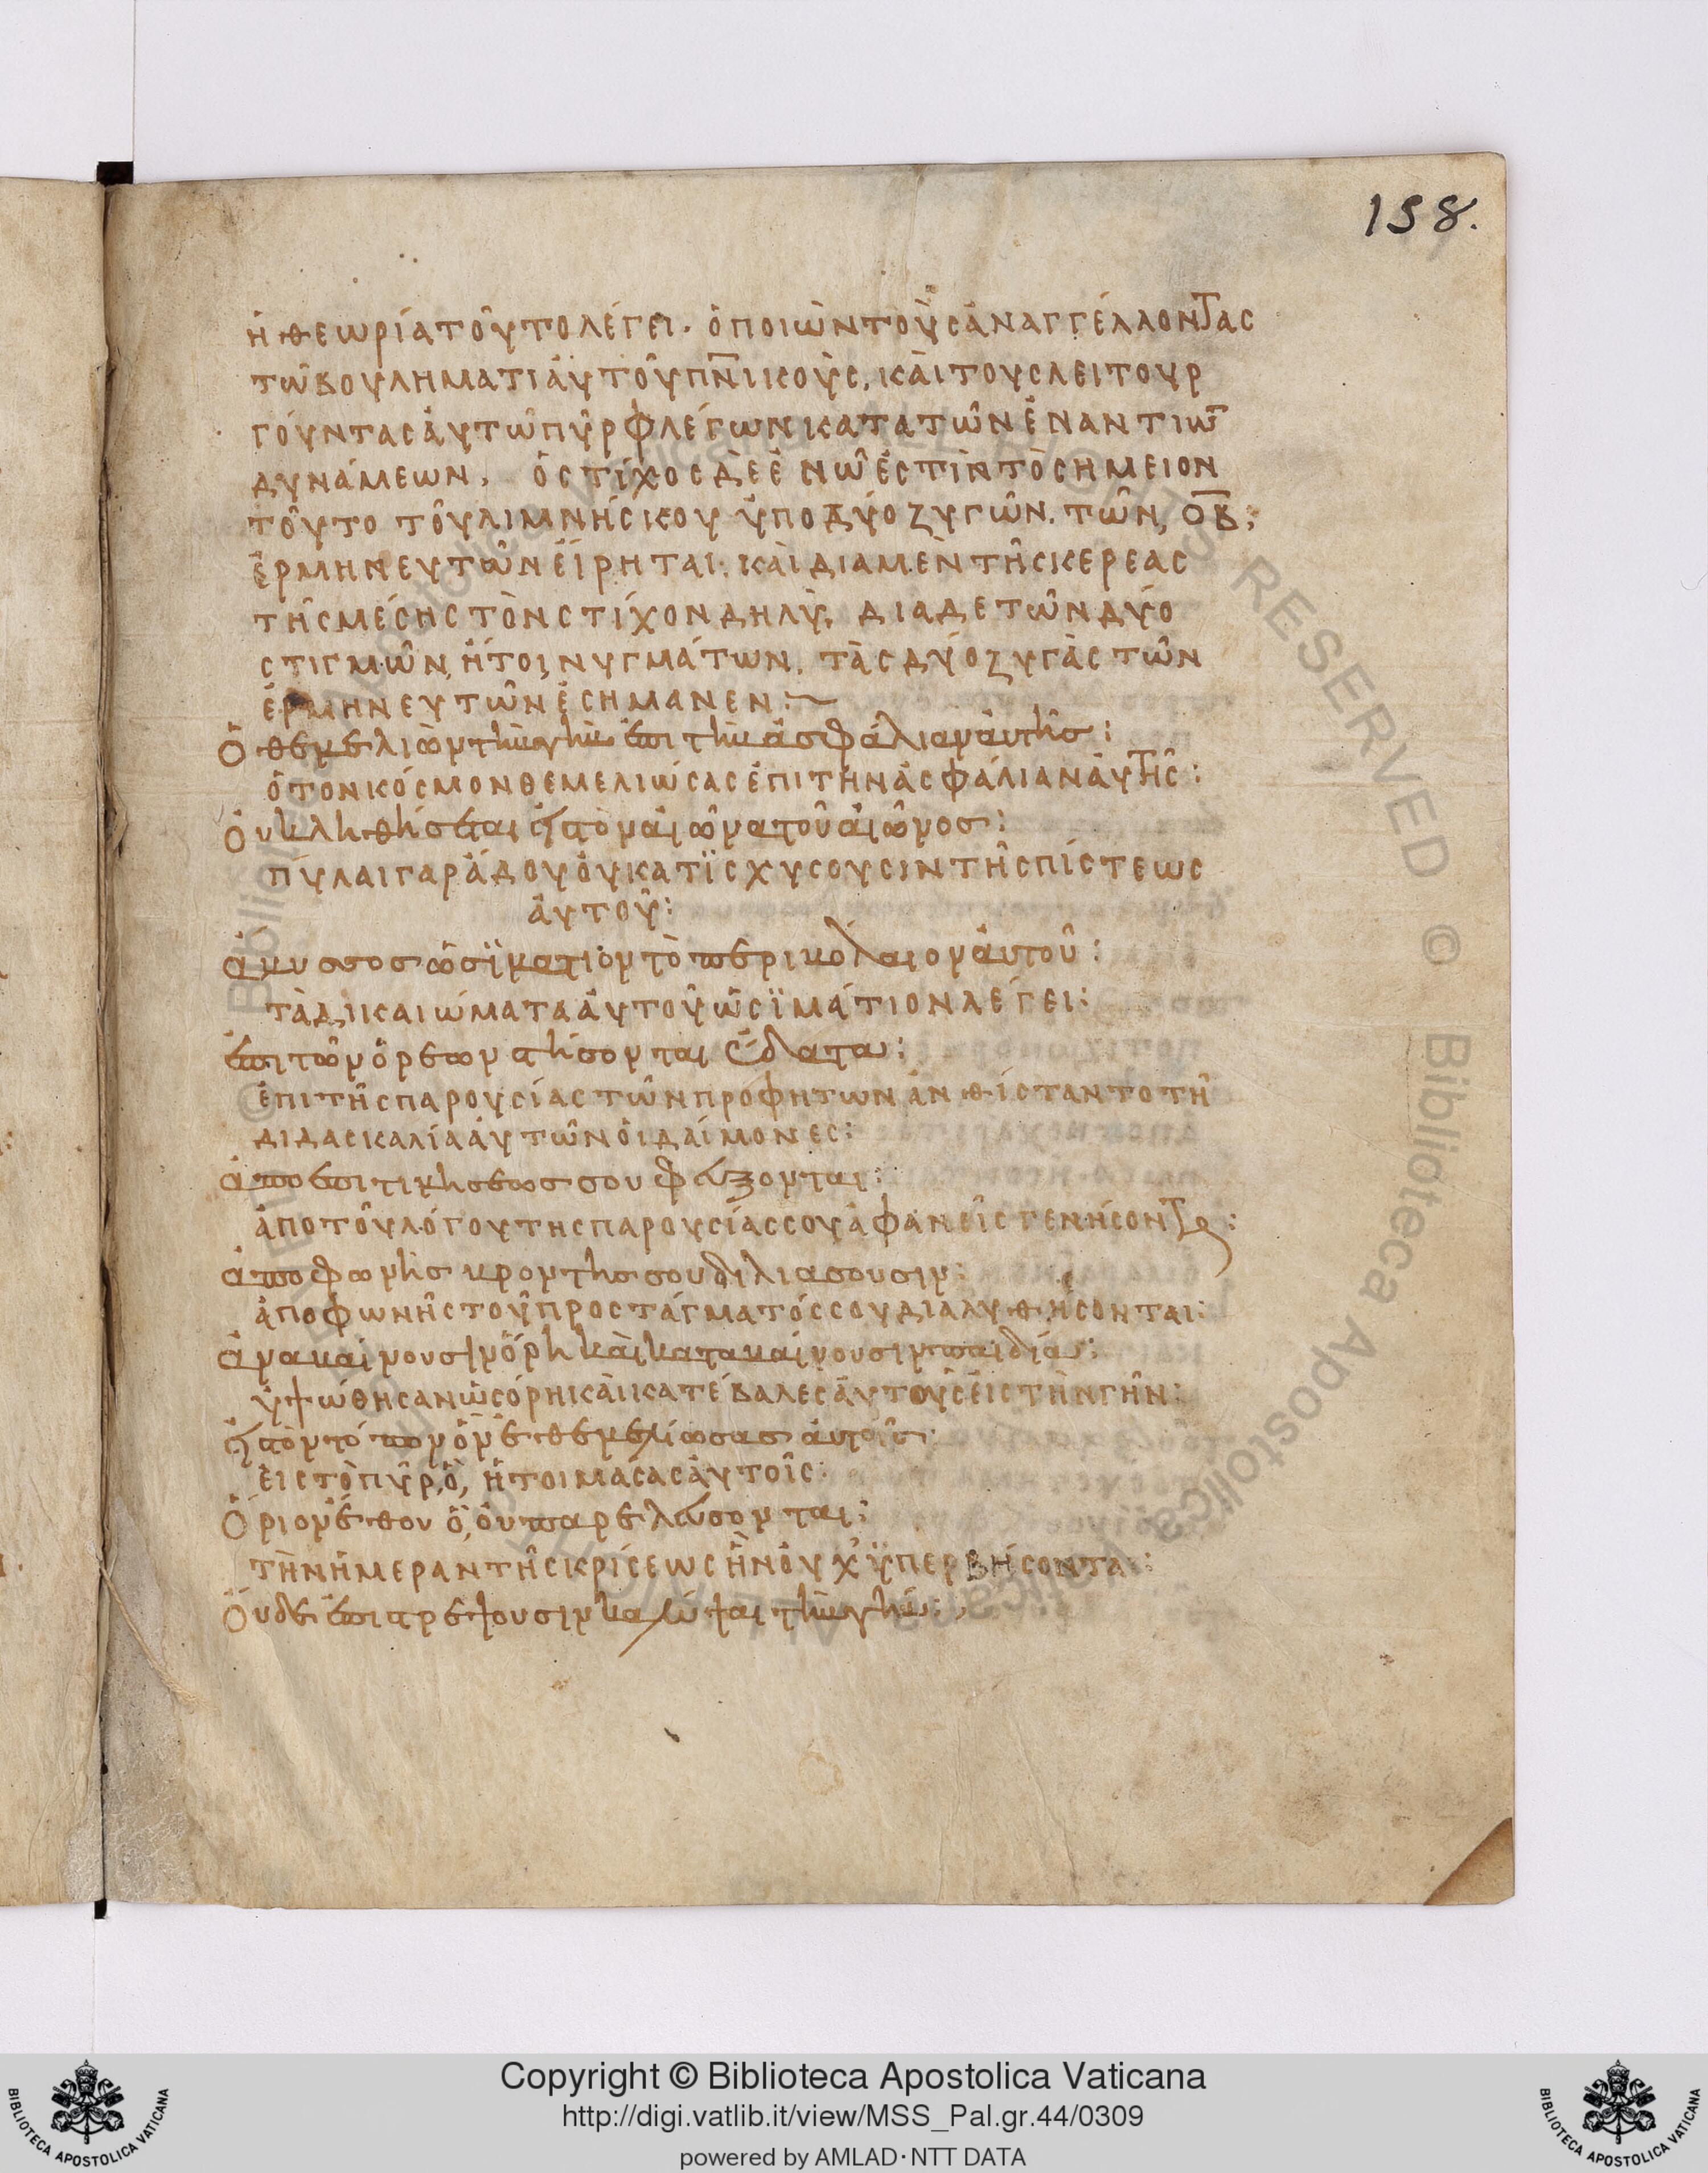 158.
ἡ θεωρία τοῦτο λέγει· ὁ ποιῶν τοὺς ἀναγγέλλοντας
τῶ βουλήματι αὐτοῦ πν̅ικοὺς, καὶ τους λειτουρ
γούντας αὐτῶ πῦρ φλέγων κατα τῶν ἐναντιω̅
δυνάμεων. ὁ στίχος δὲ ἐν ὧ ἐστὶν τὸ σημειον
τοῦτο τοῦ λιμνήσκου ὑπο δύο ζυγῶν. τῶν, ο̅β̅,
ἑρμηνευτῶν εἴρηται· καὶ δια μὲν τῆς κερεας
τῆς μέσης τὸν στίχον δηλὺ, δια δε τῶν δύο
στιγμῶν, ἤτοι νυγμάτων. τὰς δύο ζυγὰς τῶν
ἑρμηνευτῶν ἐσημανεν:~
Ὁ θεμελιῶν τὴν γῆν ἐπι τὴν ἀσφάλιαν ἀυτῆς:
ὁ τον κόσμον θεμελιώσας ἐπι τὴν ἀσφάλιαν ἀυτῆς:
Ὀυ κληθήσεται εἰς τὸν αἰῶνα τοῦ αἰῶνος:
πύλαι γαρ ἄδου ὀυ κατϊσχυσουσιν τῆς πίστεως
ἀυτοῦ:
ἄβυσσος ὡσ ϊματιον τὸ περιβόλαιον ἀυτοῦ:
τὰ δικαιώματα ἀυτοῦ ὡς ϊμάτιον λέγει:
ἐπι τῶν ὀρεων στήσονται ὕδατα:
ἐπι τῆς παρουσίας τῶν προφητων ἀνθίσταντο τῆ
διδασκαλία ἀυτῶν ὁι δαίμονες:
ἀπο ἐπιτιμησεως σου φεύξονται:
ἀπο τοῦ λόγου της παρουσίας σου ἀφανεῖς γενήσονται:
ἀπο φωνῆς βροντης σου διλιασουσιν:
ἀπο φωνῆς τοῦ προστάγματός σου διαλυθήσονται:
ἀναβαίνουσιν ὄρη καὶ καταβαίνουσιν παιδία:
ὑψώθησαν ὡς όρη καὶ κατέβαλες ἀυτοὺς ἐις τὴν γῆν:
εἰς τὸν τόπον ὃν ἐθεμελίωσας ἀυτοῖς:
ἐις τὸ πῦρ, ὃ, ἡτοιμάσας ἀυτοῖς:
Ὅριον ἔθου ὃ, ὀυ παρελεύσονται:
τὴν ἡμεραν τῆς κρίσεως ἣν ὀυχ ὑπερβήσονται:
Ὀυδε ἐπιστρεψουσιν καλύψαι τὴν γῆν:,
Copyright © Biblioteca Apostolica Vaticana
http://digi.vatlib.it/view/MSS_Pal.gr.44/0309
powered by AMLAD·NTT DATA
BIBLIOTECA APOSTOLICA VATICANA
BIBLIOTECA APOSTOLICA VATICANA